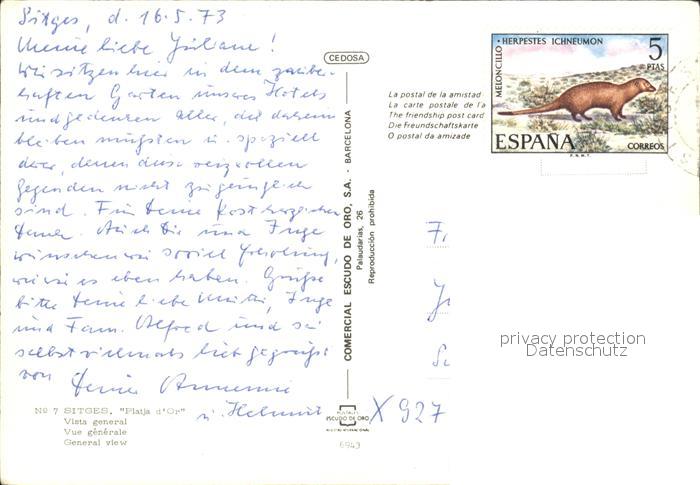 Sitges, d. 16.5.73
Meine liebe Juliane!
Wir sitzen hier in dem zauber-
haften Garten unseres Hotels
und gedenken aller, die daheim
bleiben mußten u. speziell
derer, denen diese reizvollen
Gegenden nicht zugänglich
sind. Für Deine Post herzlichen
Dank. Auch Dir und Inge
wünschen wir soviel Erholung,
wie wir es eben haben. Grüße
bitte Deine liebe Mutti, Inge
und Fam. Alfred und sei
selbst vielmals lieb gegrüßt
von Deine Annemie
u. Helmut
Nº 7 SITGES. "Platja d'Or"
Vista general
Vue générale
General view
CEDOSA
COMERCIAL ESCUDO DE ORO, S.A. - BARCELONA
Palaudarias, 26
Reproducción prohibida
POSTALES
ESCUDO DE ORO
6943
La postal de la amistad
La carte postale de l'a
The friendship post card
Die Freundschaftskarte
O postal da amizade
MELONCILLO • HERPESTES ICHNEUMON
5
PTAS
ESPAÑA
CORREOS
F.N.M.T.
X 927
privacy protection
Datenschutz